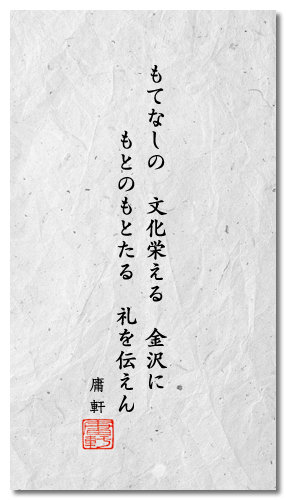 もてなしの　文化栄える　金沢に
もとのもとたる　礼を伝えん
庸軒